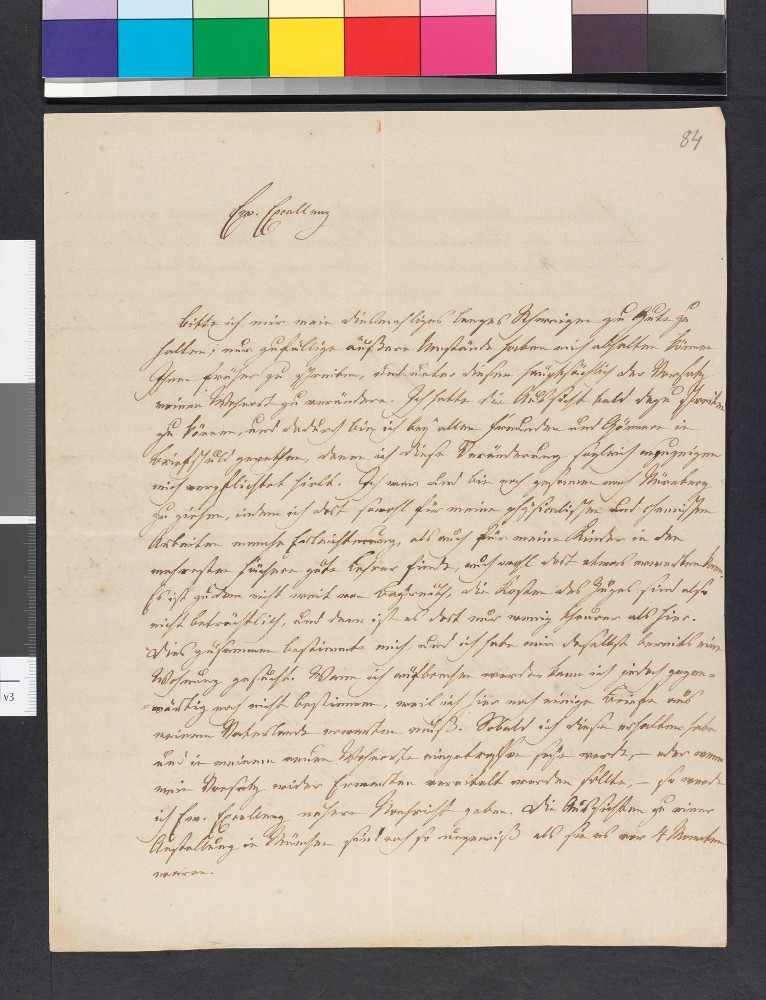 84
Ew. Excellenz
bitte ich mir mein diesmahliges langes Schweigen zu Gute zu
halten; nur zufällige äußere Umstände haben mich abhalten können
Ihnen früher zu schreiben, und unter diesen hauptsächlich der Vorsatz
meinen Wohnort zu verändern. Ich hatte die Aussicht bald dazu schreiten
zu können, und dadurch bin ich bey allen Freunden und Gönnern in
Briefschuld gerathen, denen ich diese Veränderung sogleich anzuzeigen
mich verpflichtet hielt. Ich war und bin noch gesonnen nach Nürnberg
zu ziehen, indem ich dort sowohl für meine physicalischen und chemischen
Arbeiten manche Erleichterung, als auch für meine Kinder in den
mehresten Fächern gute Lehrer finde, auch wohl dort etwas erwerben kann.
Es ist zudem nicht weit von Bayreuth, die Kosten des Zuges sind also
nicht beträchtlich, und dann ist es dort nur wenig theurer als hier.
Dies zusammen bestimmte mich, und ich habe mir daselbst bereits eine
Wohnung gesucht. Wann ich aufbrechen werde kann ich jedoch gegen-
wärtig noch nicht bestimmen, weil ich hier noch einige Briefe aus
meinem Vaterlande erwarten muß. Sobald ich diese erhalten habe
und in meinem neuen Wohnorte eingetroffen seyn werde, – oder wenn
mein Vorsatz wider Erwarten vereitelt werden sollte, – so werde
ich Ew. Excellenz nähere Nachricht geben. Die Aussichten zu einer
Anstellung in München sind noch so ungewiß als sie es vor 4 Monaten
waren.
v3